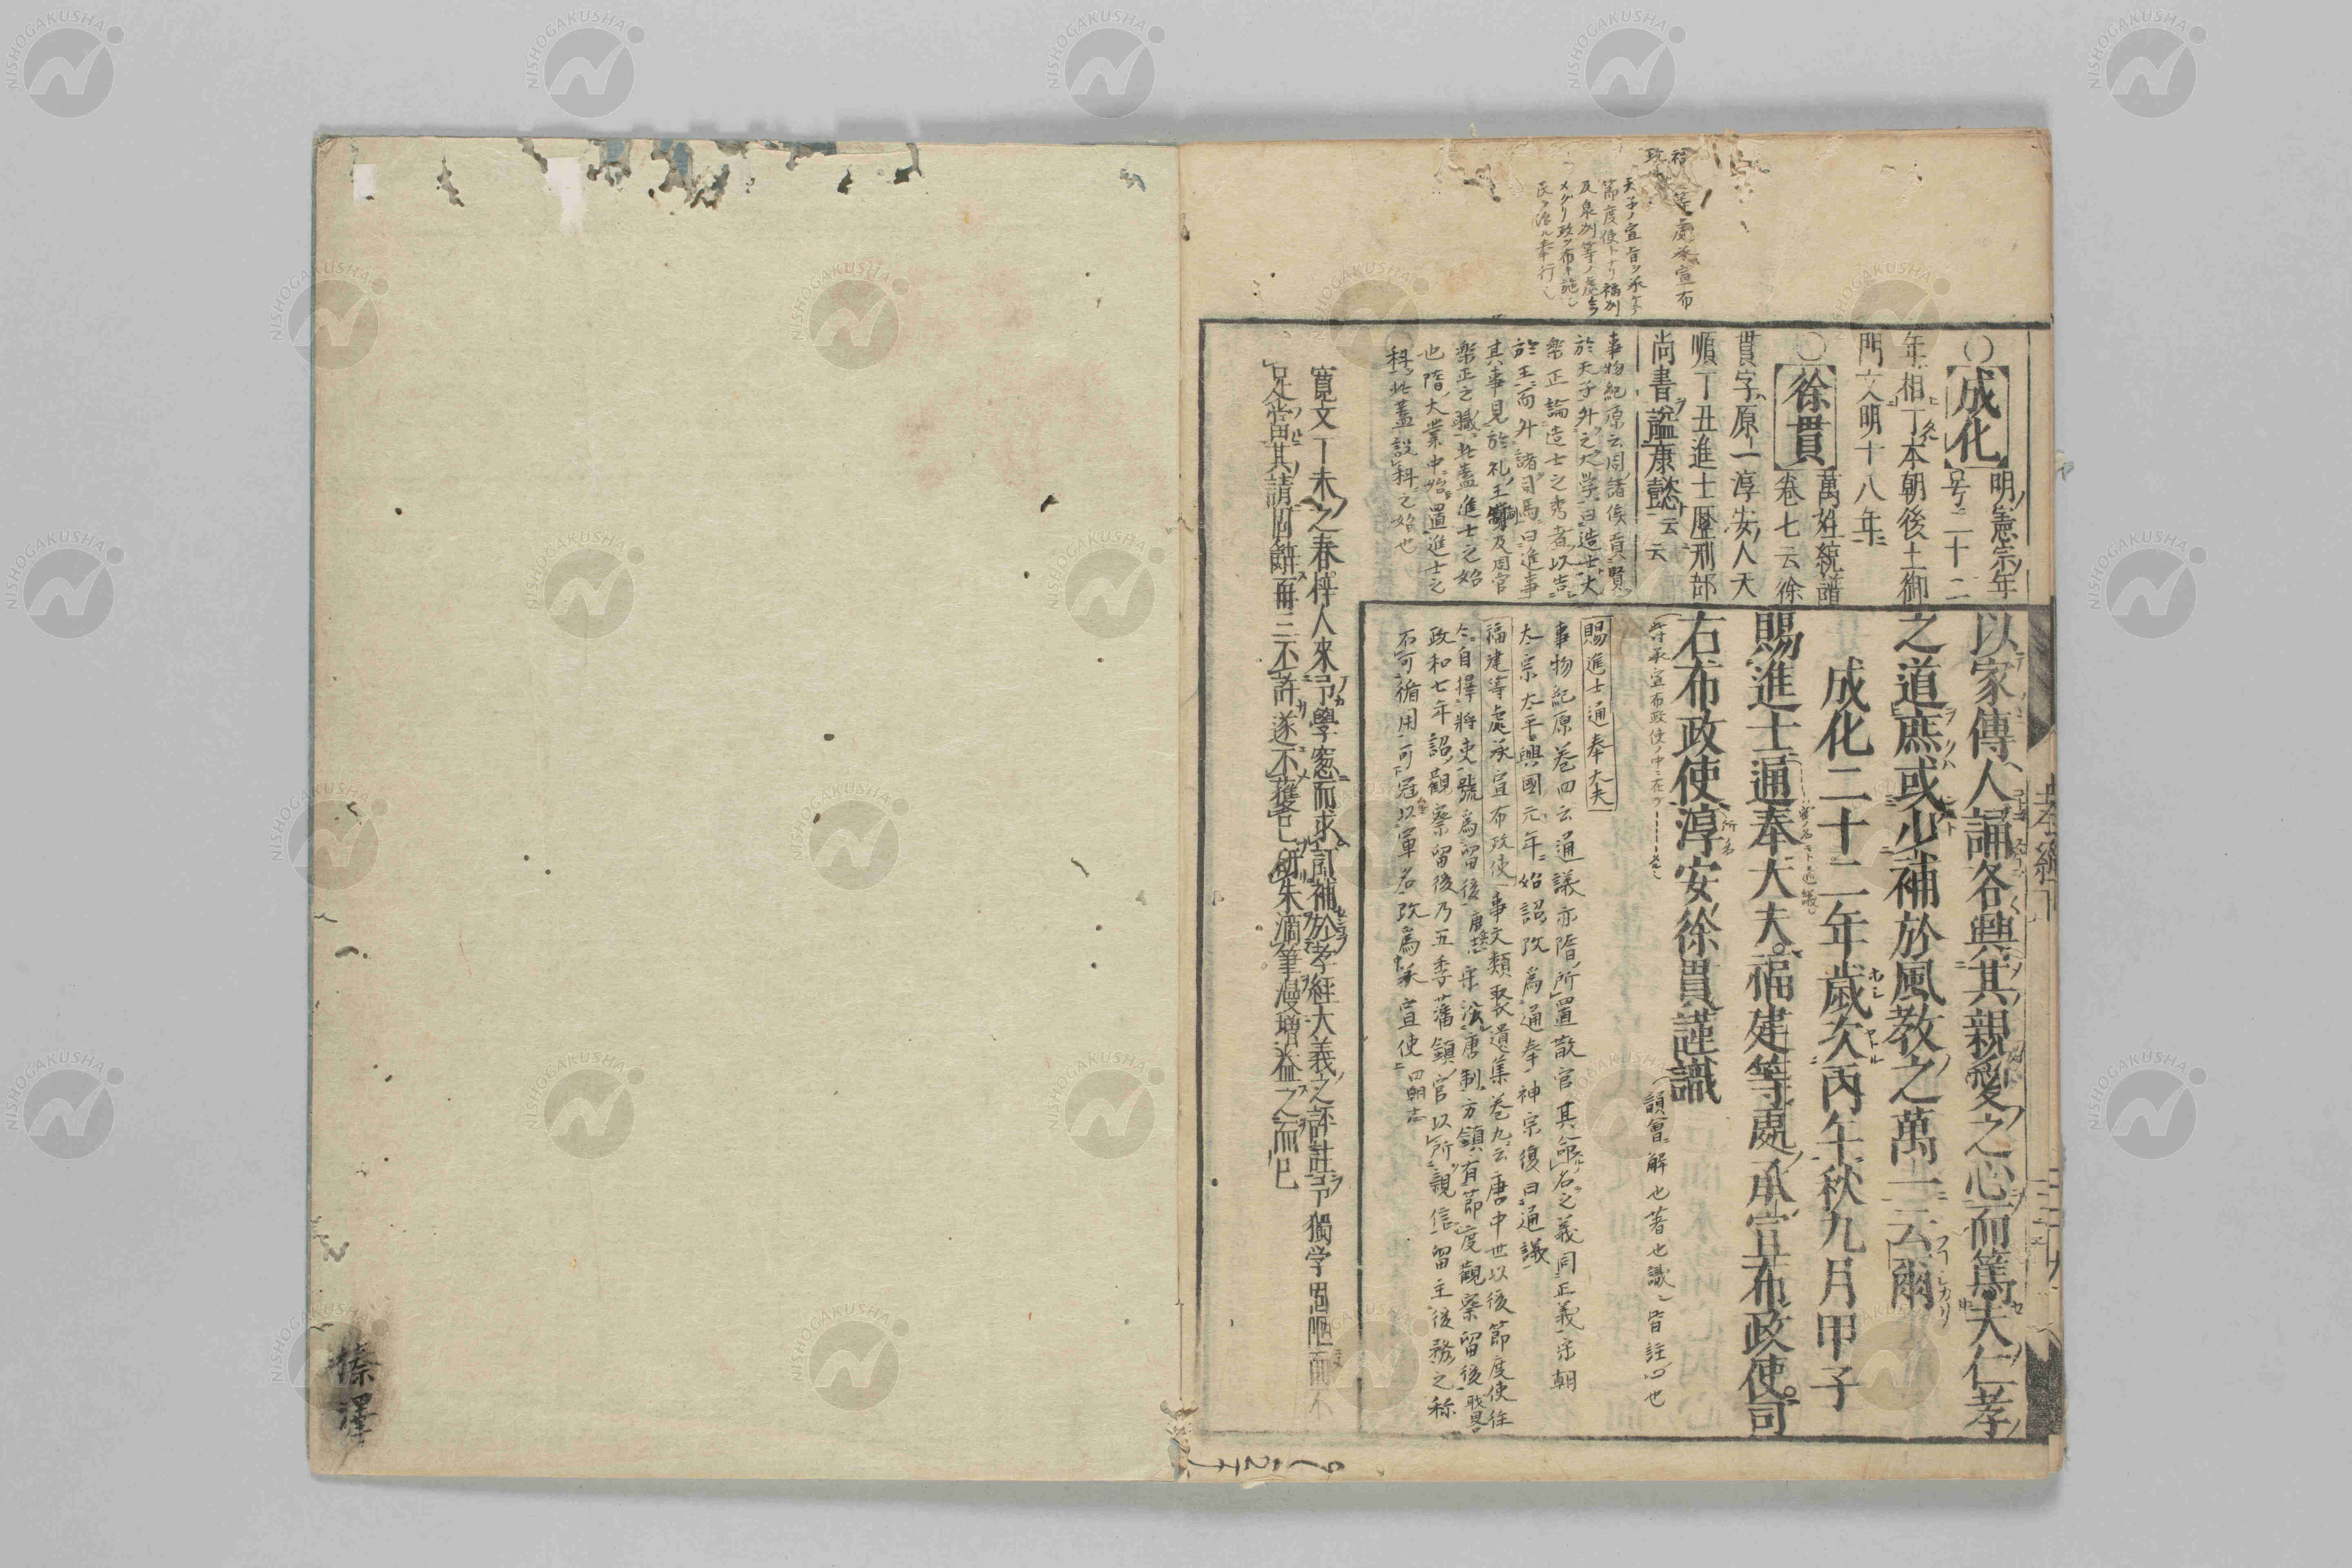 以家傳人誦各興其親愛之心而篤夫仁孝
之道庶或少補於風教之萬一云爾
成化二十二年歲次丙午秋九月甲子
賜進士通奉大夫福建等處承宣布政使司
右布政使淳安徐貫謹識
韻會解也著也識皆註心也
賜進士通奉大夫
事物紀原卷四云通議亦隋所置散官其命名之義同正義宋朝
太宗太平興國元年始詔改為通奉神宗復曰通議
福建等處承宣布政使事文類聚遺集卷九云唐中世以後節度使往
自擇將吏號為留後宋沿唐制方鎮有節度觀察留後
政和七年詔觀察留後乃五季藩鎮官以所親信留主後務之称
不可循用可冠以軍名改為承宣使
〇成化明憲宗年
号二十二
年相丁本朝後土御
門文明十八年
〇徐貫萬姓統譜
卷七云徐
貫字原一淳安人天
順丁丑進士歷刑部
尚書謚康懿云云
事物紀原云周諸侯貢賢
於天子升之大学曰造士大
樂正論造士之秀者以告
於王而升諸司馬曰進事
其事見於礼王制及周官
樂正之職此蓋進士之始
也隋大業中始置進士之
科此蓋設科之始也
等處承宣布
政
天子ノ宣旨ヲ承ケテ
節度使トナリ福州
及泉州等ノ處
メグリ政ヲ布キ施シ
民ヲ治ル奉行
寛文丁未之春梓人來予學窓而求訓補於孝經大義之評註予獨学固陋而不
足當其請固辭再三不許遂不獲已研朱滴筆漫増益之而已
孝經
藤澤
NISHOGAKUSHA